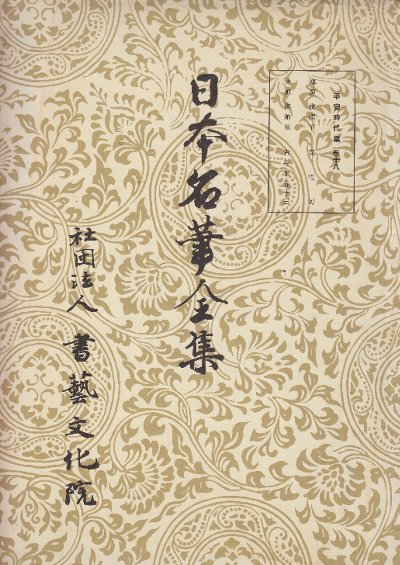 平安時代篇 巻十八
日本名筆全集
社団法人 書藝文化院